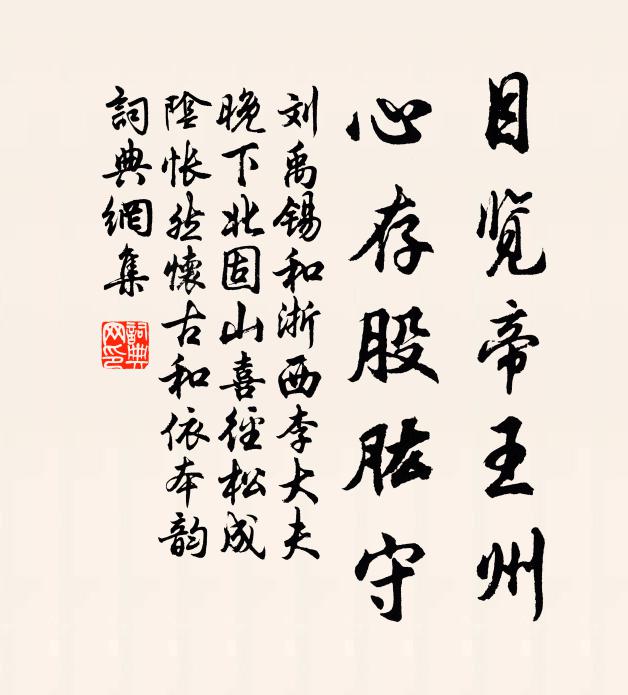 目览帝王州
心存股肱守
刘禹锡和浙西李大夫
晚下北固山喜径松成
陰怅然懷古和依本韵
詞典網集
詞典
网印